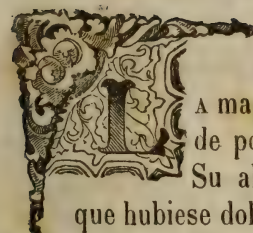 LA ma
de po
Su al
que hubiese dol